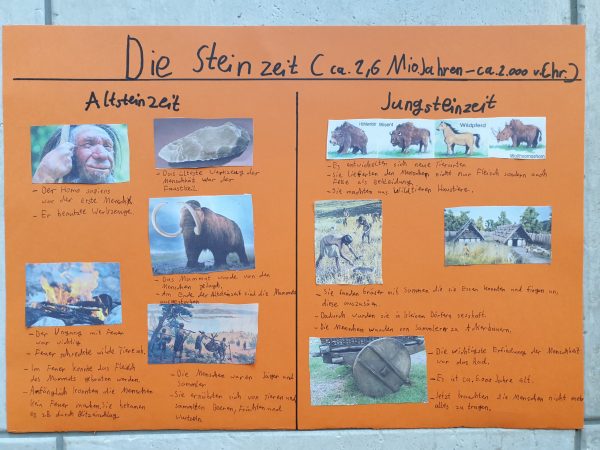 Die Steinzeit (ca. 2,6 Mio Jahren - ca. 2.000 v. Chr.)
Altsteinzeit
- Der Homo sapiens
war der erste Mensch
- Er benutzte Werkzeuge.
- Das älteste Werkzeug der
Menschheit war der
Faustkeil
- Das Mammut wurde von den
Menschen gejagt.
- Am Ende der Altsteinzeit sind die Mammuts
ausgestorben
- Der Umgang mit Feuer
war wichtig
- Feuer schreckte wilde Tiere ab.
- Im Feuer konnte das Fleisch
des Mammuts gebraten werden.
- Anfänglich konnten die Menschen
kein Feuer machen, Sie bekamen
es zB durch Blitzeinschlag
- Die Menschen waren Jäger und
Sammler
- Sie ernährten sich von Tieren und
sammelten Beeren, Früchten und
Wurzeln
Jungsteinzeit
Höhlenbär Wisent Wildpferd
Wollnashorn
- Es entwickelten sich neue Tierarten
- Sie lieferten den Menschen nicht nur Fleisch sondern auch
Felle als Bekleidung.
- Sie machten aus Wildtieren Haustiere.
- Sie fanden Gräser mit Sammen die sie Essen konnten und fingen an,
diese auszusäen.
- Dadurch wurden sie in kleinen Dörfern sesshaft.
- Die Menschen wurden von Sammlern zu Ackerbauern.
- Die wichtigste Erfindung der Menschheit
war das Rad.
- Es ist ca. 6000 Jahre alt.
- Jetzt brauchten die Menschen nicht mehr
alles zu tragen.